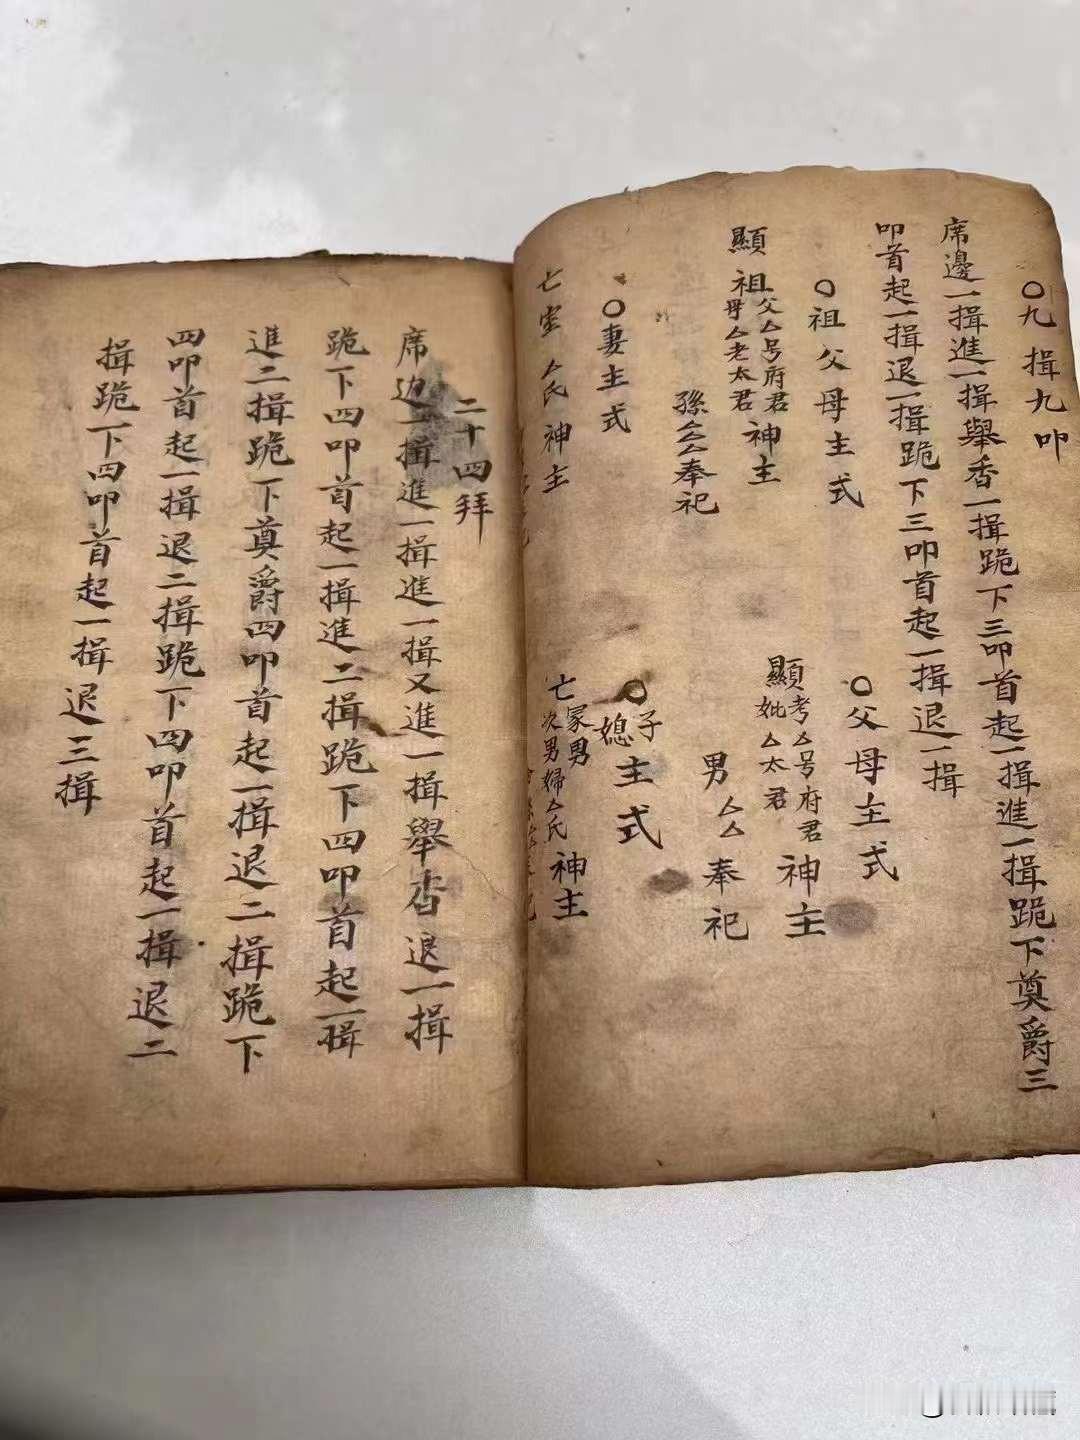 〇九揖九叩
席邊一揖進一揖舉香一揖跪下三叩首起一揖進一揖跪下奠爵三
叩首起一揖退一揖跪下三叩首起一揖退一揖
〇祖父母主式
顯祖父厶号府君
母厶老太君
神主
孫厶厶奉祀
〇父母主式
顯考厶号府君
妣厶太君
神主
男厶厶奉祀
〇妻主式
亡室厶氏神主
〇子
媳
主式
亡冢男
次男婦厶氏
神主
二十四拜
席边一揖進一揖進一揖又進一揖舉香退一揖
跪下四叩首起一揖進二揖跪下四叩首起一揖
進二揖跪下奠爵四叩首起一揖退二揖跪下
四叩首起一揖退二揖跪下四叩首起一揖退二
揖跪下四叩首起一揖退三揖